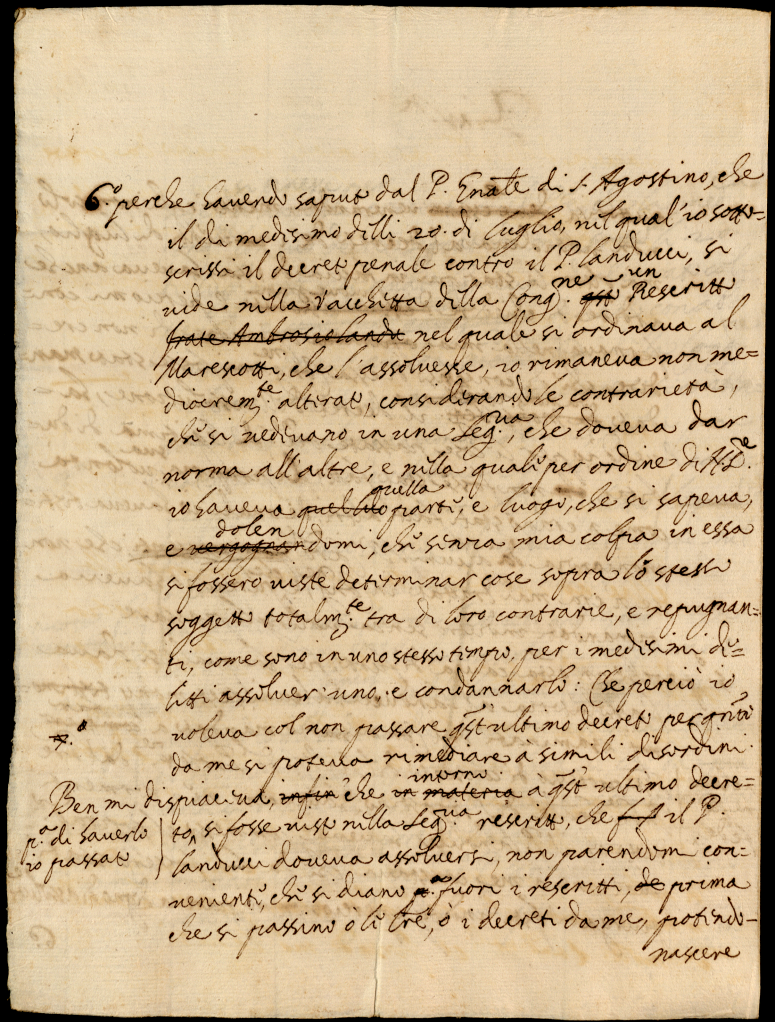 6.° perche havendo saputo dal P. Enate di S. Agostino, che
il di medesimo delli 20. di luglio, nel qual' io sotto=
scrissi il decreto penale contro il P. landucci, si
vide nella Vacchetta della Cong.ne qsto un Rescritto
frate Ambrosio landu nel quale si ordinava al
Marescotti, che l'assolvesse, io rimaneva non me=
diocrem.te alterato, considerando le contrarietà,
che si vedevano in una Seg.ria, che doveva dar
norma all'altre, e nella quale per ordine di
io haveva quella parte, e luogo, che si sapeva,
e vergognan dolendomi, che senza mia colpa in essa
si fossero viste determinar cose sopra lo stesso
soggetto totalm.te tra di loro contrarie, e repugnan=
ti, come sono in uno stesso tempo per i medesimi de=
litti assolver' uno, e condannarlo: Che perciò io
voleva col non passare qsto ultimo decreto per
da me si poteva rimediare à simili disordini.
Ben mi dispiaceva, infin che in materia intorno à qsto ultimo decre=
to, si fosse visto nella Seg.ria rescritto, che il P.
p.a di haverlo
io passato
landucci doveva assolversi, non parendomi con=
veniente, che si diano fuori i rescritti, de prima
che si passino ò le tre, ò i decreti da me, potendo=
nascere